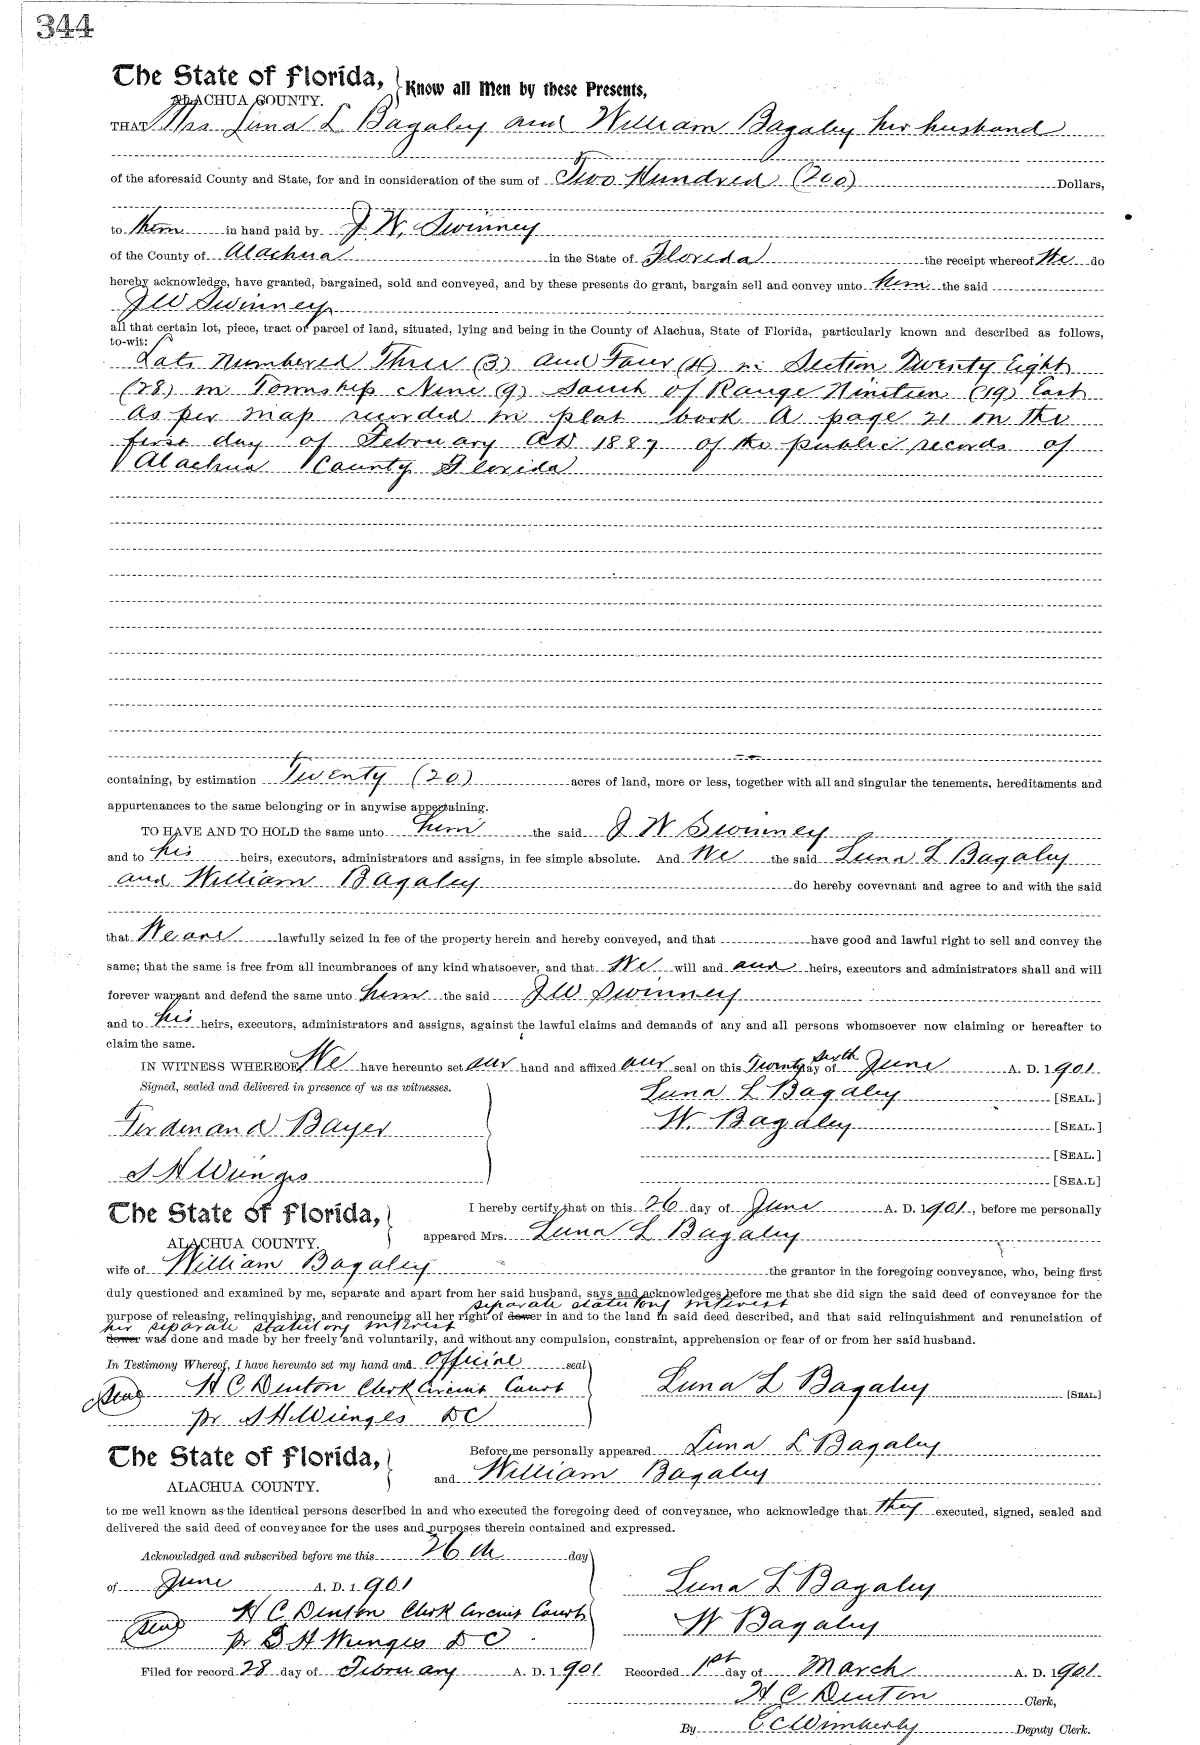 344
The State of Florida, Know all Men by these Presents,
ALACHUA COUNTY.
THAT Mrs Luna L Bagaley and William Bagaley her husband
of the aforesaid County and State, for and in consideration of the sum of Two Hundred (200) Dollars,
to them in hand paid by J. W. Swinney
of the County of Alachua in the State of Florida the receipt whereof We do
hereby acknowledge, have granted, bargained, sold and conveyed, and by these presents do grant, bargain sell and convey unto him the said
J W Swinney
all that certain lot, piece, tract or parcel of land, situated, lying and being in the County of Alachua, State of Florida, particularly known and described as follows,
to-wit:
Lots Numbered Three (3) and Four (4) in Section Twenty Eight
(28) in Township Nine (9) South of Range Nineteen (19) East
as per map recorded in plat book A page 21 on the
first day of February AD 1887 of the public records of
Alachua County Florida
containing, by estimation Twenty (20) acres of land, more or less, together with all and singular the tenements, hereditaments and
appurtenances to the same belonging or in anywise appertaining.
TO HAVE AND TO HOLD the same unto him the said J W Swinney
and to his heirs, executors, administrators and assigns, in fee simple absolute. And We the said Luna L Bagaley
and William Bagaley do hereby covevnant and agree to and with the said
that We are lawfully seized in fee of the property herein and hereby conveyed, and that have good and lawful right to sell and convey the
same; that the same is free from all incumbrances of any kind whatsoever, and that We will and our heirs, executors and administrators shall and will
forever warrant and defend the same unto him the said J W Swinney
and to his heirs, executors, administrators and assigns, against the lawful claims and demands of any and all persons whomsoever now claiming or hereafter to
claim the same.
IN WITNESS WHEREOF, We have hereunto set our hand and affixed our seal on this Twenty sixth day of June A. D. 1901
Signed, sealed and delivered in presence of us as witnesses.
Luna L Bagaley [SEAL.]
Ferdinand Bayer W. Bagaley [SEAL.]
[SEAL.]
S H Wienges [SEA.L]
The State of Florida, I hereby certify that on this 26 day of June A. D. 1901, before me personally
ALACHUA COUNTY. appeared Mrs. Luna L Bagaley
wife of William Bagaley the grantor in the foregoing conveyance, who, being first
duly questioned and examined by me, separate and apart from her said husband, says and acknowledges before me that she did sign the said deed of conveyance for the
separate statutory interest
purpose of releasing, relinquishing, and renouncing all her right of dower in and to the land in said deed described, and that said relinquishment and renunciation of
her separate statutory interest
dower was done and made by her freely and voluntarily, and without any compulsion, constraint, apprehension or fear of or from her said husband.
In Testimony Whereof, I have hereunto set my hand and Official seal
(Seal) H C Denton Clerk Circuit Court Luna L Bagaley [SEAL]
pr S H Wienges DC
The State of Florida, Before me personally appeared Luna L Bagaley
ALACHUA COUNTY. and William Bagaley
to me well known as the identical persons described in and who executed the foregoing deed of conveyance, who acknowledge that they executed, signed, sealed and
delivered the said deed of conveyance for the uses and purposes therein contained and expressed.
Acknowledged and subscribed before me this 26th day
of June A. D. 1901 Luna L Bagaley
(Seal) H C Denton Clerk Circuit Court W Bagaley
pr S H Wienges D C
Filed for record 28 day of February A. D. 1901 Recorded 1st day of March A. D. 1901
H C Denton Clerk,
By E C Wimberly Deputy Clerk.